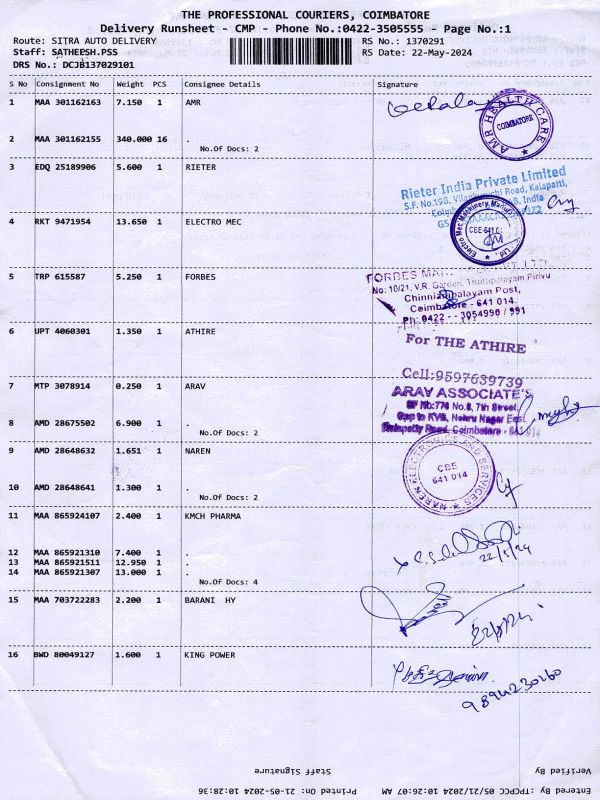 THE PROFESSIONAL COURIERS, COIMBATORE
Delivery Runsheet - CMP - Phone No.:0422-3505555 - Page No.:1
Route: SITRA AUTO DELIVERY
RS No.: 1370291
Staff: SATHEESH.PSS
RS Date: 22-May-2024
DRS No.: DCJB137029101
S No Consignment No Weight PCS Consignee Details Signature
1 MAA 301162163 7.150 1 AMR
AMR HEALTH CARE COIMBATORE
2 MAA 301162155 340.000 16 .
No.Of Docs: 2
3 EDQ 25189906 5.600 1 RIETER
Rieter India Private Limited
S.F. No.198, Kalapatti,
4 RKT 9471954 13.650 1 ELECTRO MEC
CBE
5 TRP 615587 5.250 1 FORBES
No: 10/21, V.R. Garden, Thottipalayam Pirivu
Chinniampalayam Post,
Coimbatore - 641 014.
Ph: 0422 - - 3054990 / 991
6 UPT 4060301 1.350 1 ATHIRE
For THE ATHIRE
Cell:9597639739
7 MTP 3078914 0.250 1 ARAV
ARAV ASSOCIATE'S
SF No:774 No.6, 7th Street,
Opp to KVB, Nehru Nagar East,
8 AMD 28675502 6.900 1 .
No.Of Docs: 2
9 AMD 28648632 1.651 1 NAREN
NAREN ELECTRONICS AND SERVICES
CBE
641 014
10 AMD 28648641 1.300 1 .
No.Of Docs: 2
11 MAA 865924107 2.400 1 KMCH PHARMA
12 MAA 865921310 7.400 1 .
13 MAA 865921511 12.950 1 .
14 MAA 865921307 13.000 1 .
No.Of Docs: 4
22/5/24
15 MAA 703722283 2.200 1 BARANI HY
16 BWD 80049127 1.600 1 KING POWER
9894230260
Verified By
Staff Signature
Entered By :TPCPCC 05/21/2024 10:26:07 AM
Printed On: 21-05-2024 10:28:36